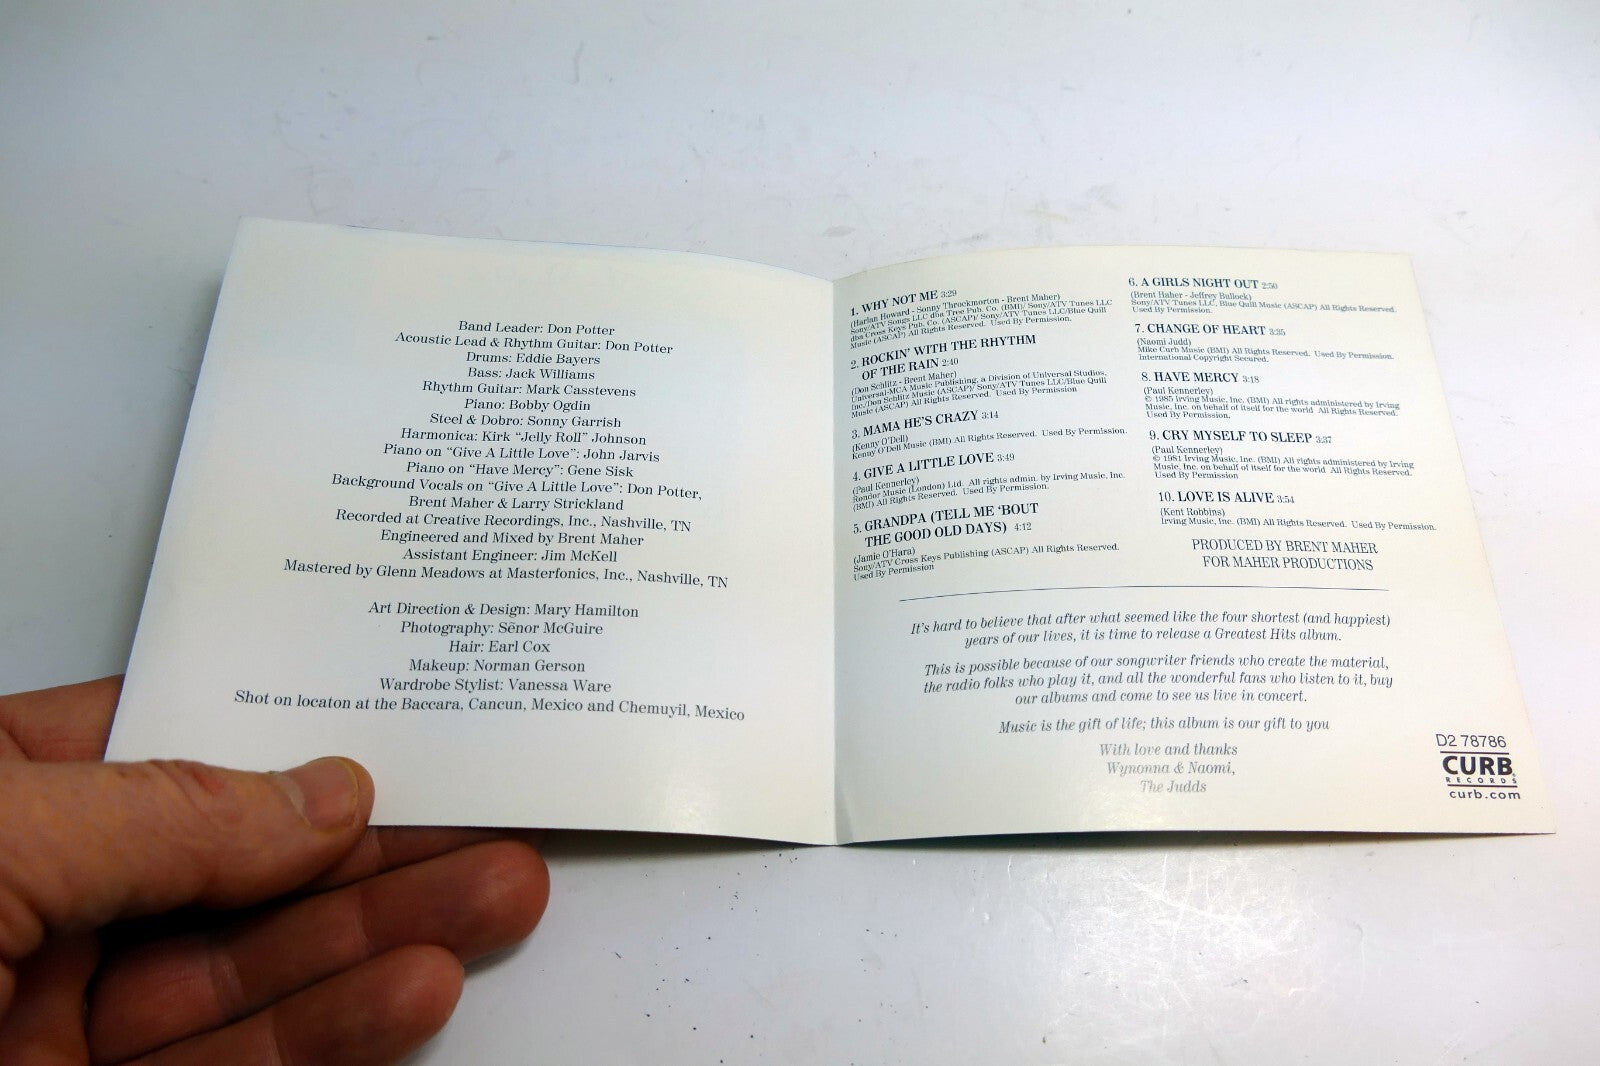 Band Leader: Don Potter
Acoustic Lead & Rhythm Guitar: Don Potter
Drums: Eddie Bayers
Bass: Jack Williams
Rhythm Guitar: Mark Casstevens
Piano: Bobby Ogdin
Steel & Dobro: Sonny Garrish
Harmonica: Kirk "Jelly Roll" Johnson
Piano on "Give A Little Love": John Jarvis
Piano on "Have Mercy": Gene Sisk
Background Vocals on "Give A Little Love": Don Potter,
Brent Maher & Larry Strickland
Recorded at Creative Recordings, Inc., Nashville, TN
Engineered and Mixed by Brent Maher
Assistant Engineer: Jim McKell
Mastered by Glenn Meadows at Masterfonics, Inc., Nashville, TN
Art Direction & Design: Mary Hamilton
Photography: Sēnor McGuire
Hair: Earl Cox
Makeup: Norman Gerson
Wardrobe Stylist: Vanessa Ware
Shot on locaton at the Baccara, Cancun, Mexico and Chemuyil, Mexico
1. WHY NOT ME 3:29
(Harlan Howard - Sonny Throckmorton - Brent Maher)
Sony/ATV Songs LLC dba Tree Pub. Co. (BMI)/ Sony/ATV Tunes LLC
dba Cross Keys Pub. Co. (ASCAP)/ Sony/ATV Tunes LLC/Blue Quill
Music (ASCAP) All Rights Reserved. Used By Permission.
2. ROCKIN' WITH THE RHYTHM
OF THE RAIN 2:40
(Don Schlitz - Brent Maher)
Universal-MCA Music Publishing, a Division of Universal Studios,
Inc./Don Schlitz Music (ASCAP)/ Sony/ATV Tunes LLC/Blue Quill
Music (ASCAP) All Rights Reserved. Used By Permission
3. MAMA HE'S CRAZY 3:14
(Kenny O'Dell)
Kenny O'Dell Music (BMI) All Rights Reserved. Used By Permission.
4. GIVE A LITTLE LOVE 3:49
(Paul Kennerley)
Rondor Music (London) Ltd. All rights admin. by Irving Music, Inc.
(BMI) All Rights Reserved. Used By Permission.
5. GRANDPA (TELL ME 'BOUT
THE GOOD OLD DAYS) 4:12
(Jamie O'Hara)
Sony/ATV Cross Keys Publishing (ASCAP) All Rights Reserved.
Used By Permission
6. A GIRLS NIGHT OUT 2:50
(Brent Haher - Jeffrey Bullock)
Sony/ATV Tunes LLC, Blue Quill Music (ASCAP) All Rights Reserved.
Used By Permission.
7. CHANGE OF HEART 3:35
(Naomi Judd)
Mike Curb Music (BMI) All Rights Reserved. Used By Permission.
International Copyright Secured.
8. HAVE MERCY 3:18
(Paul Kennerley)
© 1985 Irving Music, Inc. (BMI) All rights administered by Irving
Music, Inc. on behalf of itself for the world All Rights Reserved.
Used By Permission.
9. CRY MYSELF TO SLEEP 3:37
(Paul Kennerley)
© 1981 Irving Music, Inc. (BMI) All rights administered by Irving
Music, Inc. on behalf of itself for the world All Rights Reserved.
Used By Permission
10. LOVE IS ALIVE 3:54
(Kent Robbins)
Irving Music, Inc. (BMI) All Rights Reserved. Used By Permission.
PRODUCED BY BRENT MAHER
FOR MAHER PRODUCTIONS
It's hard to believe that after what seemed like the four shortest (and happiest)
years of our lives, it is time to release a Greatest Hits album.
This is possible because of our songwriter friends who create the material,
the radio folks who play it, and all the wonderful fans who listen to it, buy
our albums and come to see us live in concert.
Music is the gift of life; this album is our gift to you
With love and thanks
Wynonna & Naomi,
The Judds
D2 78786
CURB®
RECORDS
curb.com